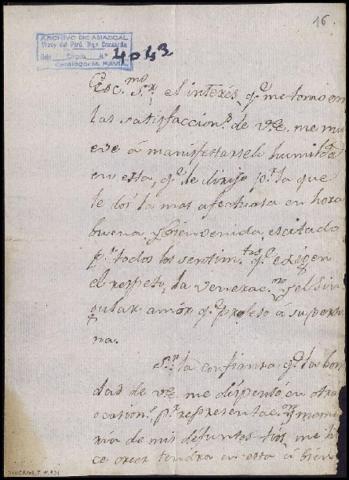 16.
ARCHIVO DE ABASCAL
Virrey del Perú, Mqs. Concordia
4043
Exc.mo S.or el interes, q.e me tomo en
las satisfaccion.s de V.E. me mu
eve á manifestarseli humild.te
en esta, q.e le dirijo p.a la que
le doi la mas afectuosa en hora
buena y bienvenida, escitado
p.r todos los sentim.tos q.e exigen
el respeto, la venerac.on y el sin
gular amór q.e profeso á su perso
na.
S.or la confianza q.e la bon
dad de V.E. me dispensó en otra
ocasion p.r representac.on y memo
ria de mis difuntos tios, me ha
ce creer tendra en esta á bien